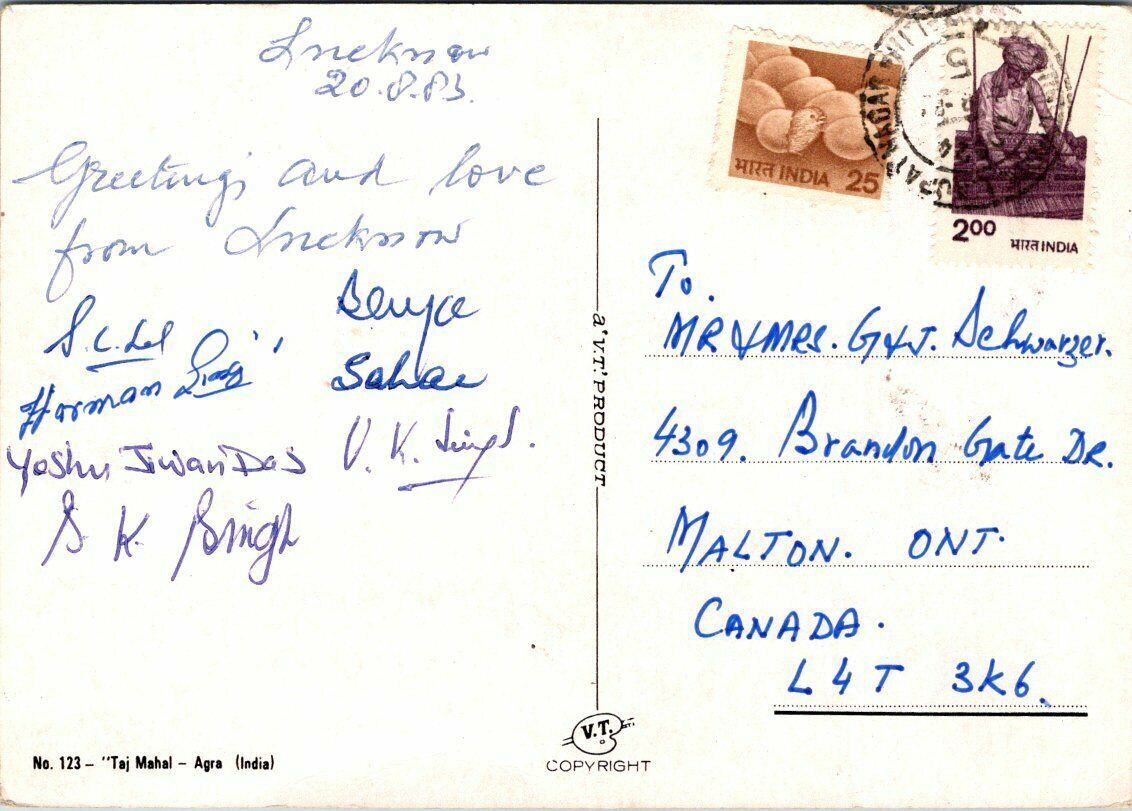 Lucknow
20.8.83.
Greetings and love
from Lucknow
S.C. Lal
Benya
Sahae
Harman Singh
Yoshu Jiwan Das
V. K. Singh.
S K Singh
No. 123 – "Taj Mahal – Agra (India)
a 'V.T.' PRODUCT
V.T.
COPYRIGHT
भारत INDIA 25
2.00
भारत INDIA
To.
MR & MRS. G & J. Schwarzer.
4309. Brandon Gate DR.
MALTON. ONT.
CANADA.
L4T 3K6.